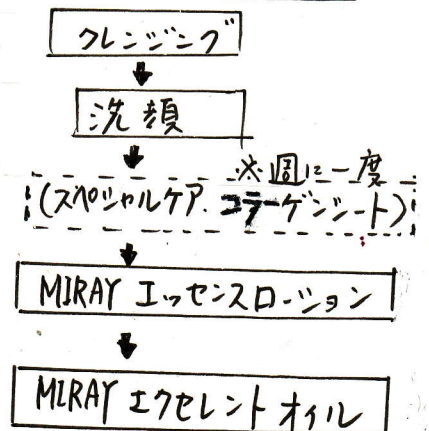 クレンジング
洗顔
※週に一度
(スペシャルケア. コラーゲンシート)
MIRAY エッセンスローション
MIRAY エクセレント オイル